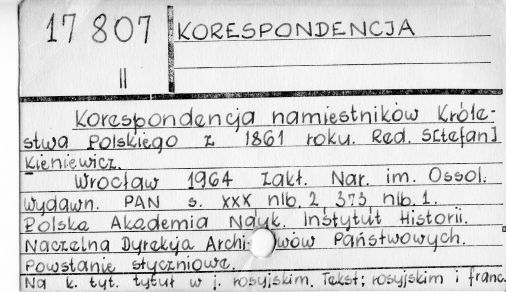 17 807
II
KORESPONDENCJA
Korespondencja namiestników Króle-
stwa Polskiego z 1861 roku. Red. S[tefan]
Kieniewicz.
Wrocław 1964 Zakł. Nar. im. Ossol.
Wydawn. PAN s. XXX, nlb. 2, 373, nlb. 1.
Polska Akademia Nauk. Instytut Historii.
Naczelna Dyrekcja Archi wów Państwowych.
Powstanie styczniowe.
Na k. tyt. tytuł w j. rosyjskim. Tekst; rosyjskim i franc.